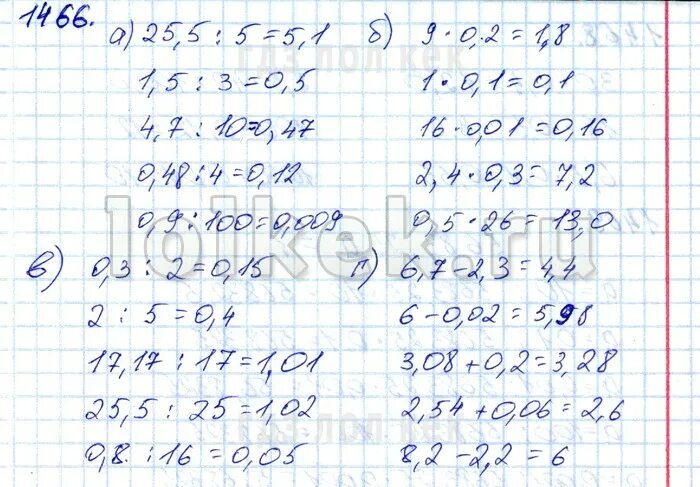 1466.
а) 25,5 : 5 = 5,1
1,5 : 3 = 0,5
4,7 : 10 = 0,47
0,48 : 4 = 0,12
0,9 : 100 = 0,009
б) 9 · 0,2 = 1,8
1 · 0,1 = 0,1
16 · 0,01 = 0,16
2,4 · 0,3 = 7,2
0,5 · 26 = 13,0
в) 0,3 : 2 = 0,15
2 : 5 = 0,4
17,17 : 17 = 1,01
25,5 : 25 = 1,02
0,8 : 16 = 0,05
г) 6,7 - 2,3 = 4,4
6 - 0,02 = 5,98
3,08 + 0,2 = 3,28
2,54 + 0,06 = 2,6
8,2 - 2,2 = 6
гдз пол кек
lolkek.ru
гдз лол кек